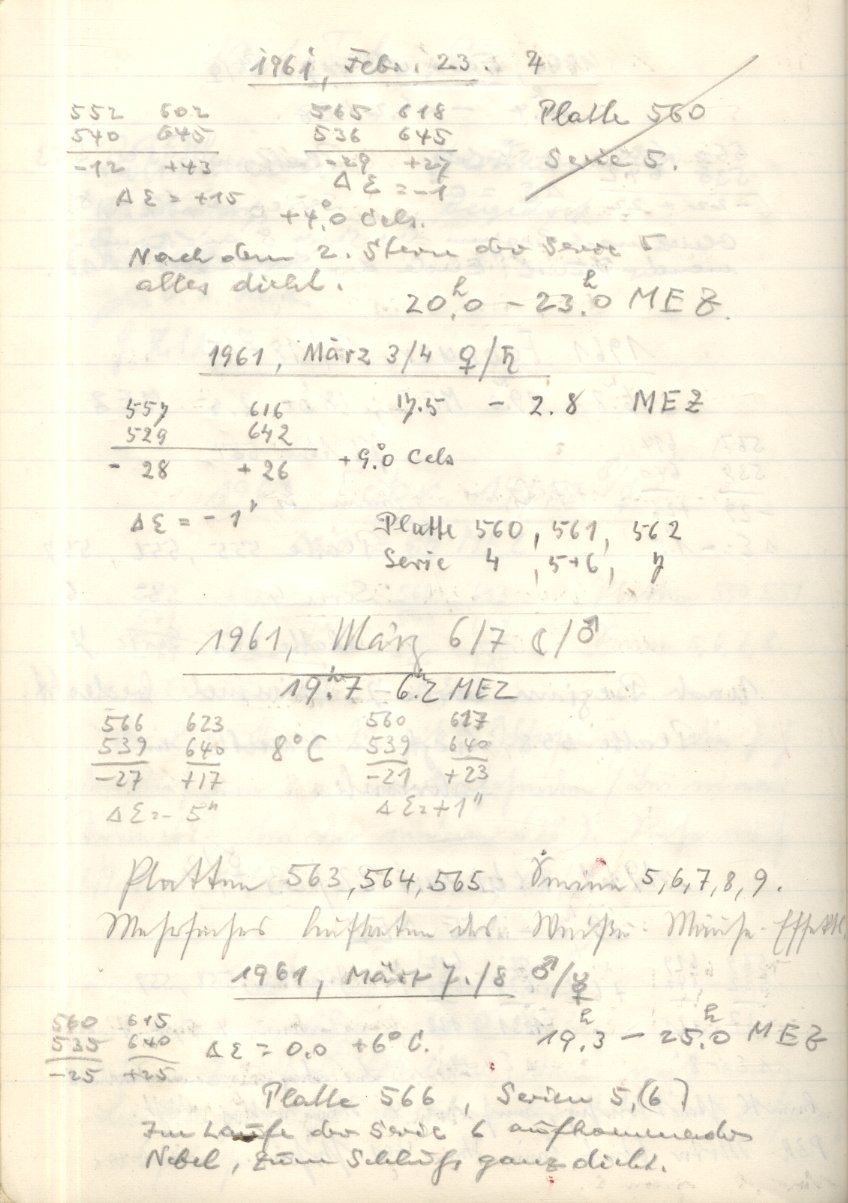 1961, Febr. 23. ♃
552 602 565 618 Platte 560
540 645 536 645 Serie 5.
-12 +43 -29 +27
Δε = +15 Δε = -1
+4°.0 Cels.
Nach dem 2. Stern der Serie 5
alles dicht.
20ʰ.0 – 23ʰ.0 MEZ.
1961, März 3/4 ♀/♄
557 616 17.5 - 2.8 MEZ
529 642
- 28 + 26 +9°.0 Cels
Δε = - 1"
Platte 560, 561, 562
Serie 4, 5+6, 7
1961, März 6/7 ☾/♂
19ʰ.7 – 6ʰ.2 MEZ
566 623 560 617
539 640 8°C 539 640
-27 +17 -21 +23
Δε = - 5" Δε = +1"
Platten 563, 564, 565 Serien 5, 6, 7, 8, 9.
Mehrfaches Auftreten des Weiße-Mäuse-Effekts.
1961, März 7./8 ♂/☿
560 615 19ʰ.3 – 25ʰ.0 MEZ
535 640 Δε = 0.0 +6°C.
-25 +25
Platte 566, Serien 5, (6)
Im Laufe der Serie 6 aufkommender
Nebel, zum Schluß ganz dicht.